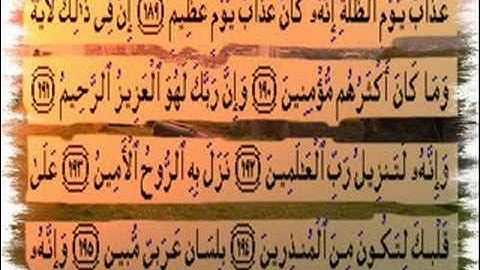 عَذَابُ يَوْمِ ٱلظُّلَّةِ إِنَّهُۥ كَانَ عَذَابَ يَوْمٍ عَظِيمٍ ١٨٩ إِنَّ فِى ذَٰلِكَ لَـَٔايَةً
وَمَا كَانَ أَكْثَرُهُم مُّؤْمِنِينَ ١٩٠ وَإِنَّ رَبَّكَ لَهُوَ ٱلْعَزِيزُ ٱلرَّحِيمُ ١٩١
وَإِنَّهُۥ لَتَنزِيلُ رَبِّ ٱلْعَـٰلَمِينَ ١٩٢ نَزَلَ بِهِ ٱلرُّوحُ ٱلْأَمِينُ ١٩٣ عَلَىٰ
قَلْبِكَ لِتَكُونَ مِنَ ٱلْمُنذِرِينَ ١٩٤ بِلِسَانٍ عَرَبِىٍّ مُّبِينٍ ١٩٥ وَإِنَّهُۥ